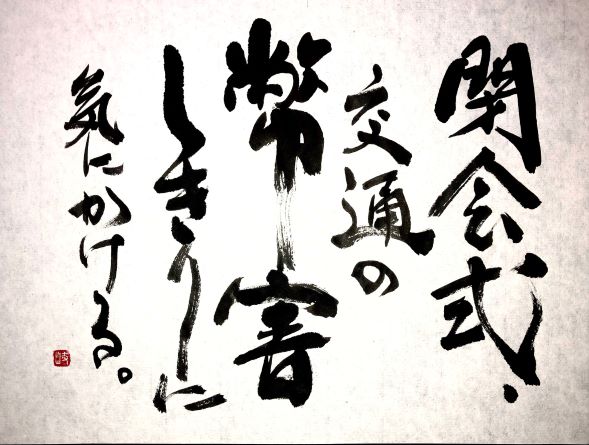 開会式、
交通の
幣害
しきりに
気にかける。